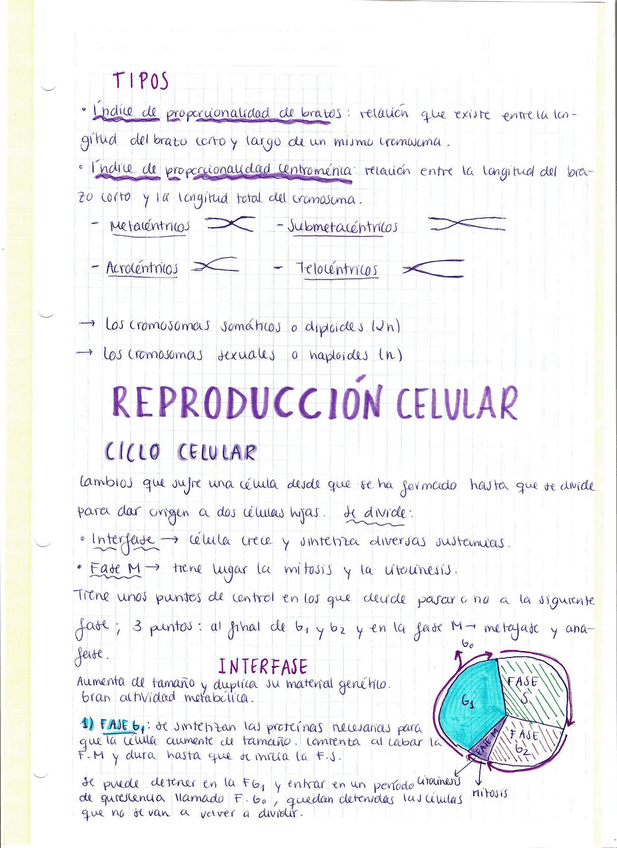 TIPOS
• Índice de proporcionalidad de brazos: relación que existe entre la lon-
gitud del brazo corto y largo de un mismo cromosoma.
• Índice de proporcionalidad centromérica: relación entre la longitud del bra-
zo corto y la longitud total del cromosoma.
- Metacéntricos - Submetacéntricos
- Acrocéntricos - Telocéntricos
→ Los cromosomas somáticos o diploides (2n)
→ Los cromosomas sexuales o haploides (n)
REPRODUCCIÓN CELULAR
CICLO CELULAR
Cambios que sufre una célula desde que se ha formado hasta que se divide
para dar origen a dos células hijas. Se divide:
• Interfase → célula crece y sintetiza diversas sustancias.
• Fase M → tiene lugar la mitosis y la citocinesis.
Tiene unos puntos de control en los que decide pasar o no a la siguiente
fase; 3 puntos: al final de G1 y G2 y en la fase M → metafase y ana-
fase.
INTERFASE
Aumenta de tamaño y duplica su material genético.
Gran actividad metabólica.
1) FASE G1: se sintetizan las proteínas necesarias para
que la célula aumente de tamaño. Comienza al cabar la
F.M y dura hasta que se inicia la F.S.
Se puede detener en la FG1 y entrar en un período
de quiescencia llamado F.G0, quedan detenidas las células
que no se van a volver a dividir.
G0
G1
FASE
S
FASE
G2
FASE M
citocinesis
mitosis